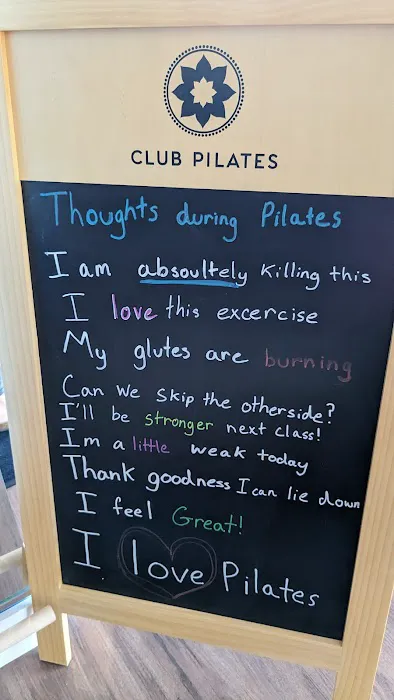 CLUB PILATES
Thoughts during Pilates
I am absoultely killing this
I love this excercise
My glutes are burning
Can we skip the otherside?
I'll be stronger next class!
Im a little weak today
Thank goodness I can lie down
I feel Great!
I love Pilates